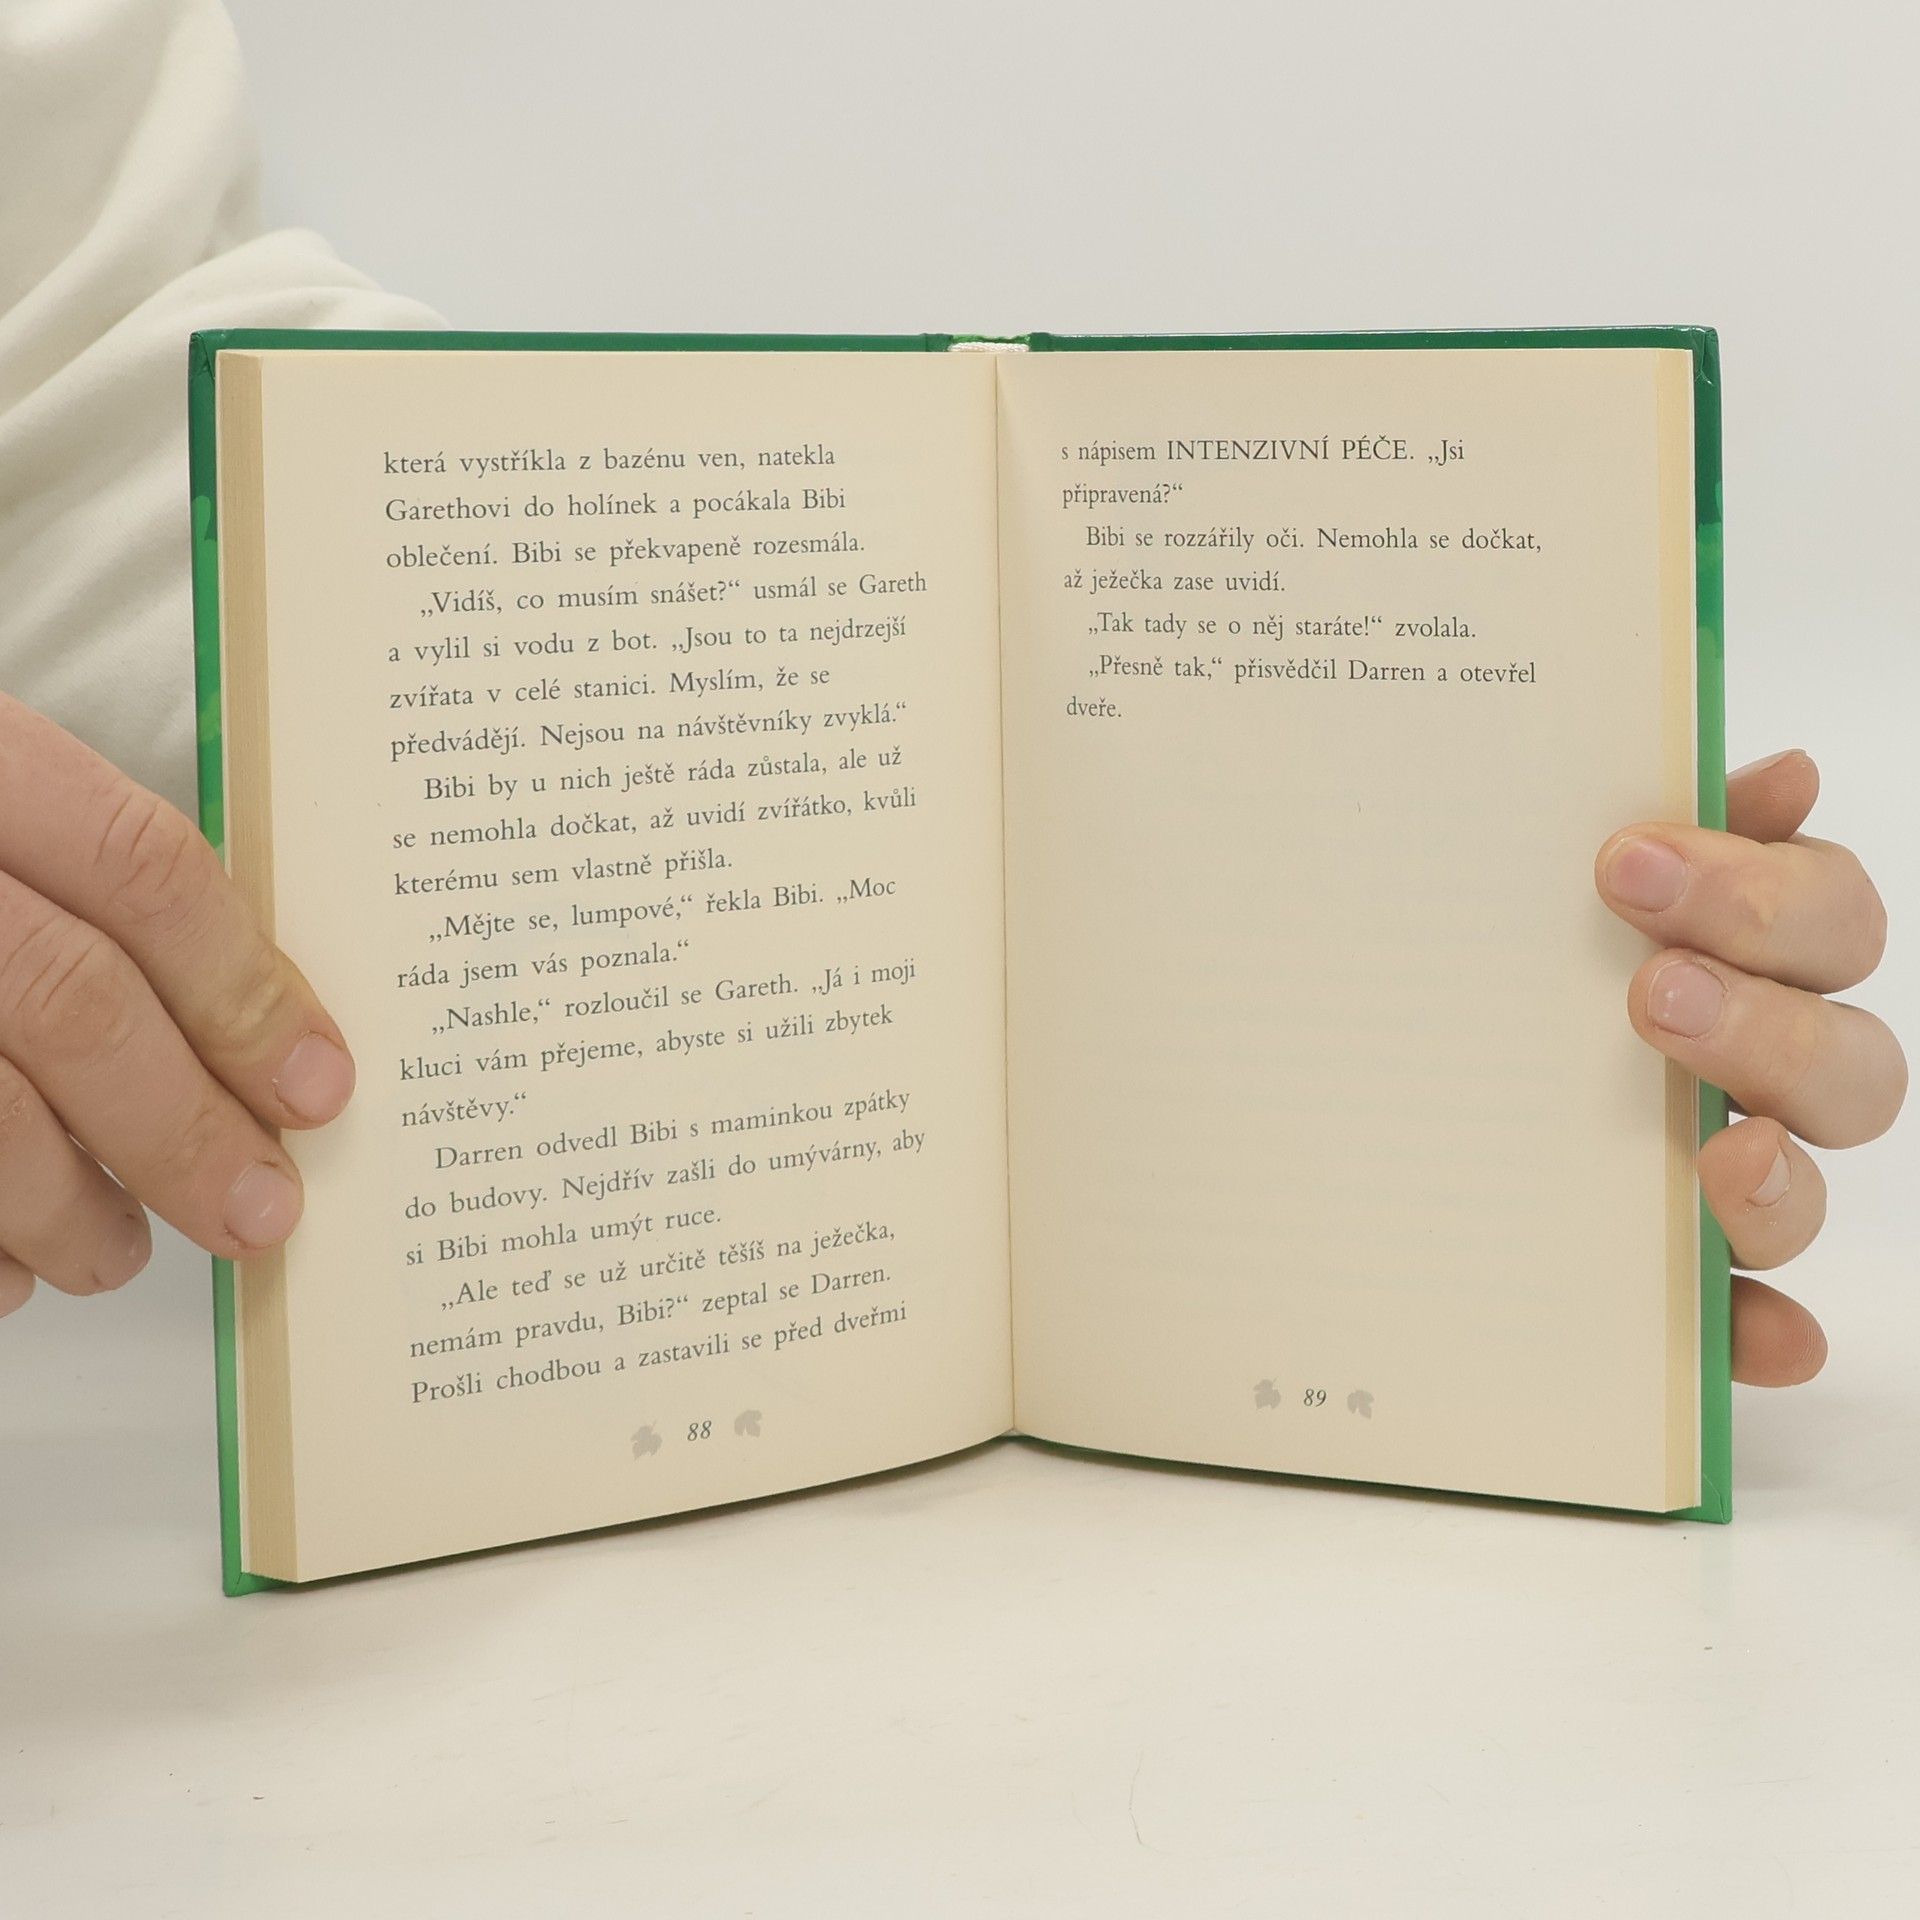 která vystříkla z bazénu ven, natekla
Garethovi do holínek a pocákala Bibi
oblečení. Bibi se překvapeně rozesmála.
„Vidíš, co musím snášet?“ usmál se Gareth
a vylil si vodu z bot. „Jsou to ta nejdrzejší
zvířata v celé stanici. Myslím, že se
předvádějí. Nejsou na návštěvníky zvyklá.“
Bibi by u nich ještě ráda zůstala, ale už
se nemohla dočkat, až uvidí zvířátko, kvůli
kterému sem vlastně přišla.
„Mějte se, lumpové,“ řekla Bibi. „Moc
ráda jsem vás poznala.“
„Nashle,“ rozloučil se Gareth. „Já i moji
kluci vám přejeme, abyste si užili zbytek
návštěvy.“
Darren odvedl Bibi s maminkou zpátky
do budovy. Nejdřív zašli do umývárny, aby
si Bibi mohla umýt ruce.
„Ale teď se už určitě těšíš na ježečka,
nemám pravdu, Bibi?“ zeptal se Darren.
Prošli chodbou a zastavili se před dveřmi
88
s nápisem INTENZIVNÍ PÉČE. „Jsi
připravená?“
Bibi se rozzářily oči. Nemohla se dočkat,
až ježečka zase uvidí.
„Tak tady se o něj staráte!“ zvolala.
„Přesně tak,“ přisvědčil Darren a otevřel
dveře.
89